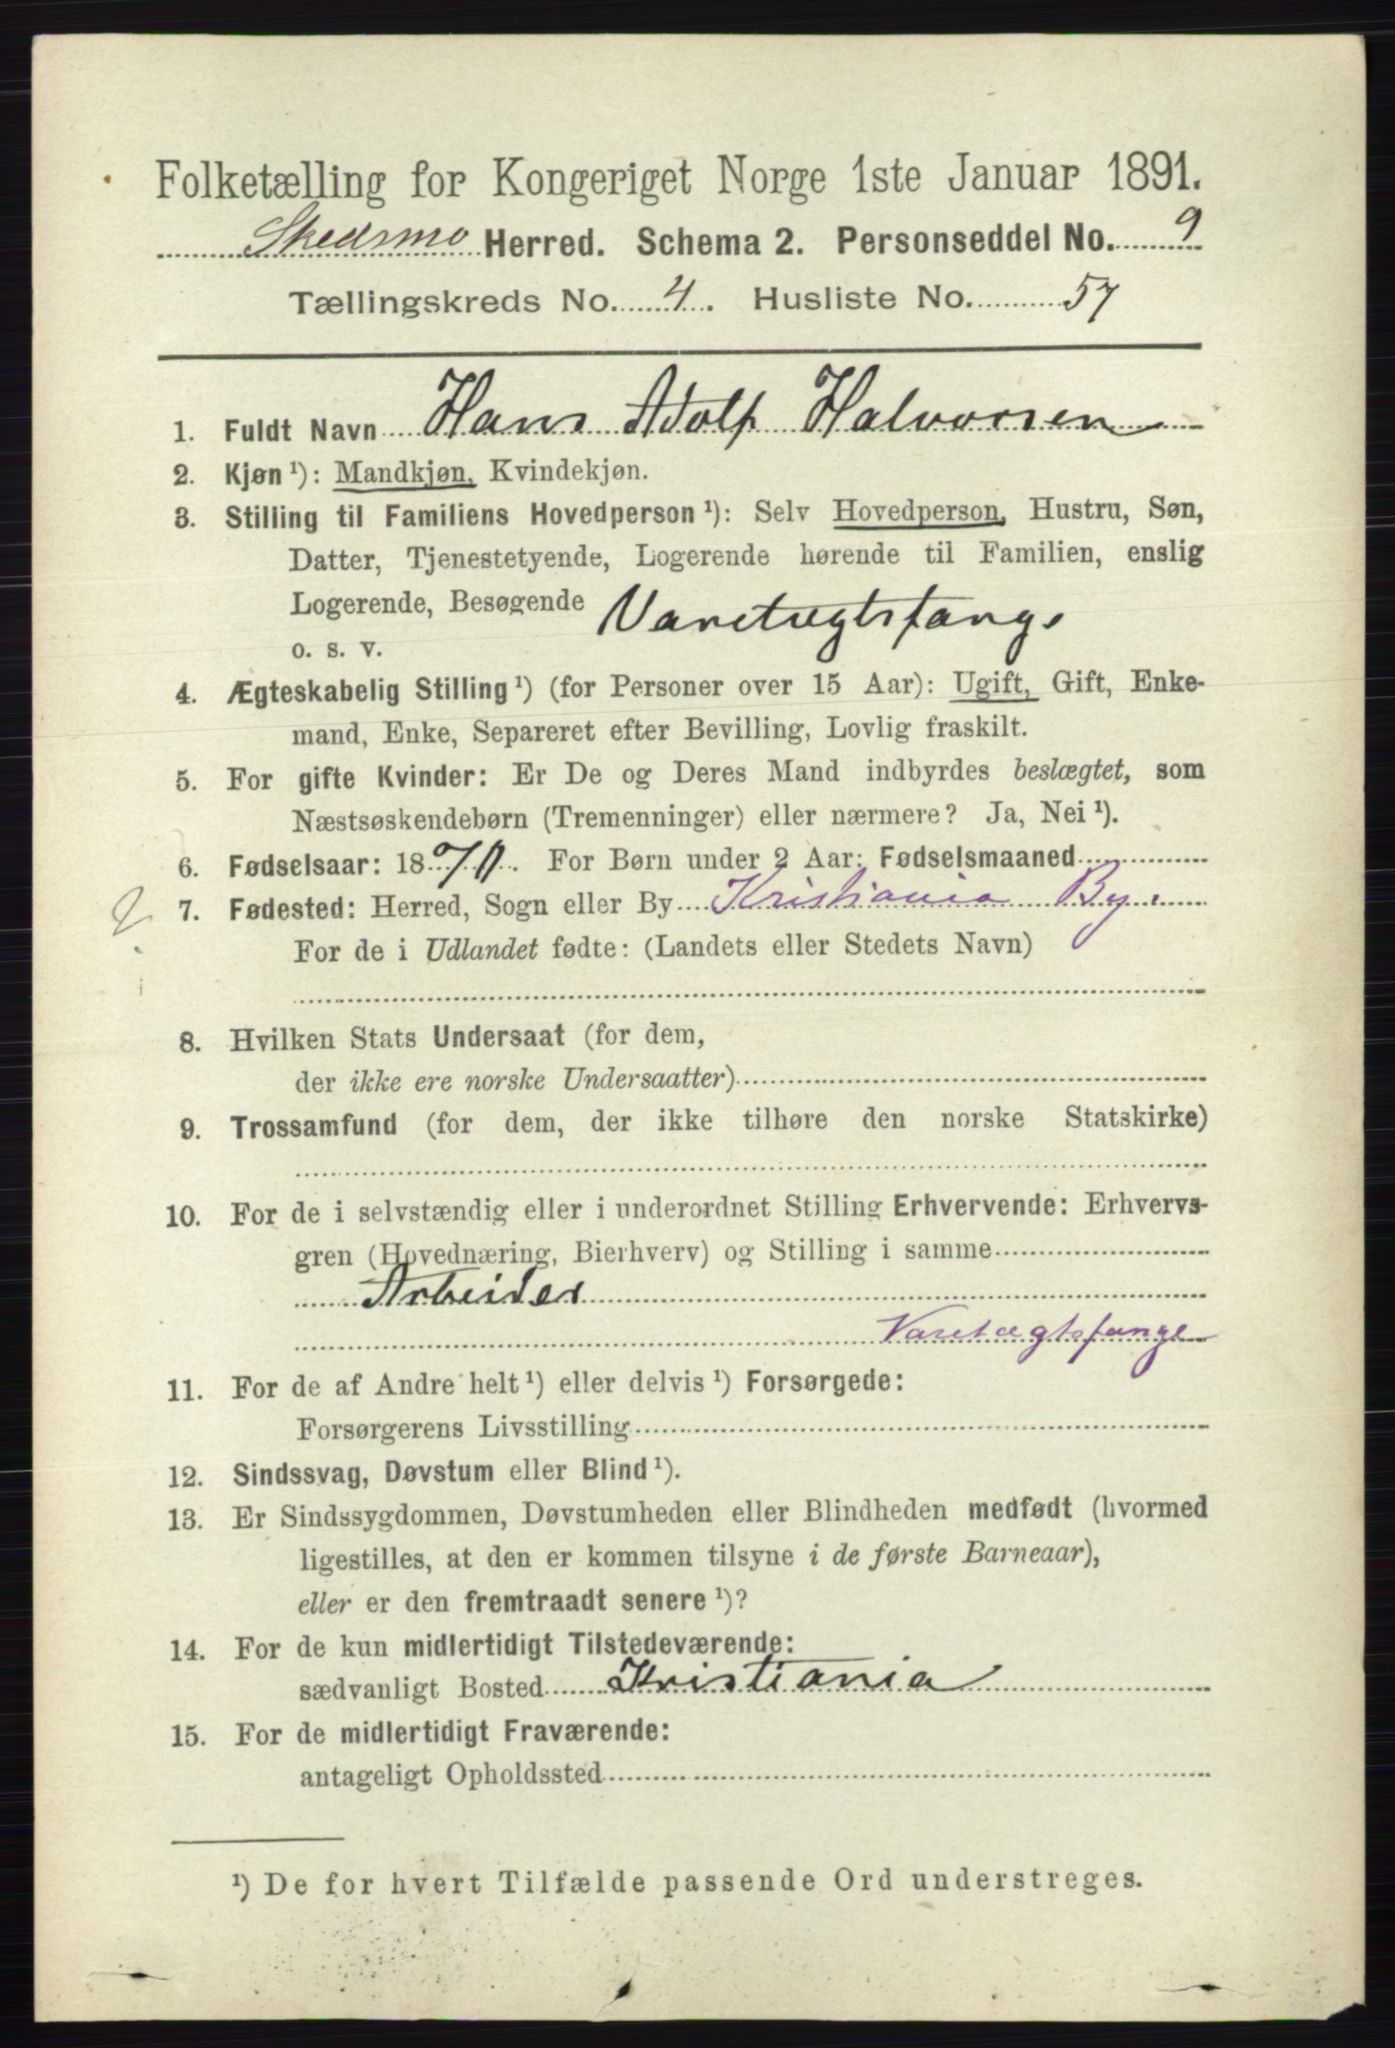 Folketælling for Kongeriget Norge 1ste Januar 1891.
Skedsmo Herred. Schema 2. Personseddel No. 9
Tællingskreds No. 4. Husliste No. 57
1. Fuldt Navn Hans Adolf Halvorsen
2. Kjøn ¹): Mandkjøn, Kvindekjøn.
3. Stilling til Familiens Hovedperson ¹): Selv Hovedperson, Hustru, Søn,
Datter, Tjenestetyende, Logerende hørende til Familien, enslig
Logerende, Besøgende Varetægtsfange
o. s. v.
4. Ægteskabelig Stilling ¹) (for Personer over 15 Aar): Ugift, Gift, Enke-
mand, Enke, Separeret efter Bevilling, Lovlig fraskilt.
5. For gifte Kvinder: Er De og Deres Mand indbyrdes beslægtet, som
Næstsøskendebørn (Tremenninger) eller nærmere? Ja, Nei ¹).
6. Fødselsaar: 1870. For Børn under 2 Aar: Fødselsmaaned
7. Fødested: Herred, Sogn eller By Kristiania By.
For de i Udlandet fødte: (Landets eller Stedets Navn)
8. Hvilken Stats Undersaat (for dem,
der ikke ere norske Undersaatter)
9. Trossamfund (for dem, der ikke tilhøre den norske Statskirke)
10. For de i selvstændig eller i underordnet Stilling Erhvervende: Erhvervs-
gren (Hovednæring, Bierhverv) og Stilling i samme
Arbeider
Varetægtsfange
11. For de af Andre helt ¹) eller delvis ¹) Forsørgede:
Forsørgerens Livsstilling
12. Sindssvag, Døvstum eller Blind ¹).
13. Er Sindssygdommen, Døvstumheden eller Blindheden medfødt (hvormed
ligestilles, at den er kommen tilsyne i de første Barneaar),
eller er den fremtraadt senere ¹)?
14. For de kun midlertidigt Tilstedeværende:
sædvanligt Bosted Kristiania
15. For de midlertidigt Fraværende:
antageligt Opholdssted
¹) De for hvert Tilfælde passende Ord understreges.